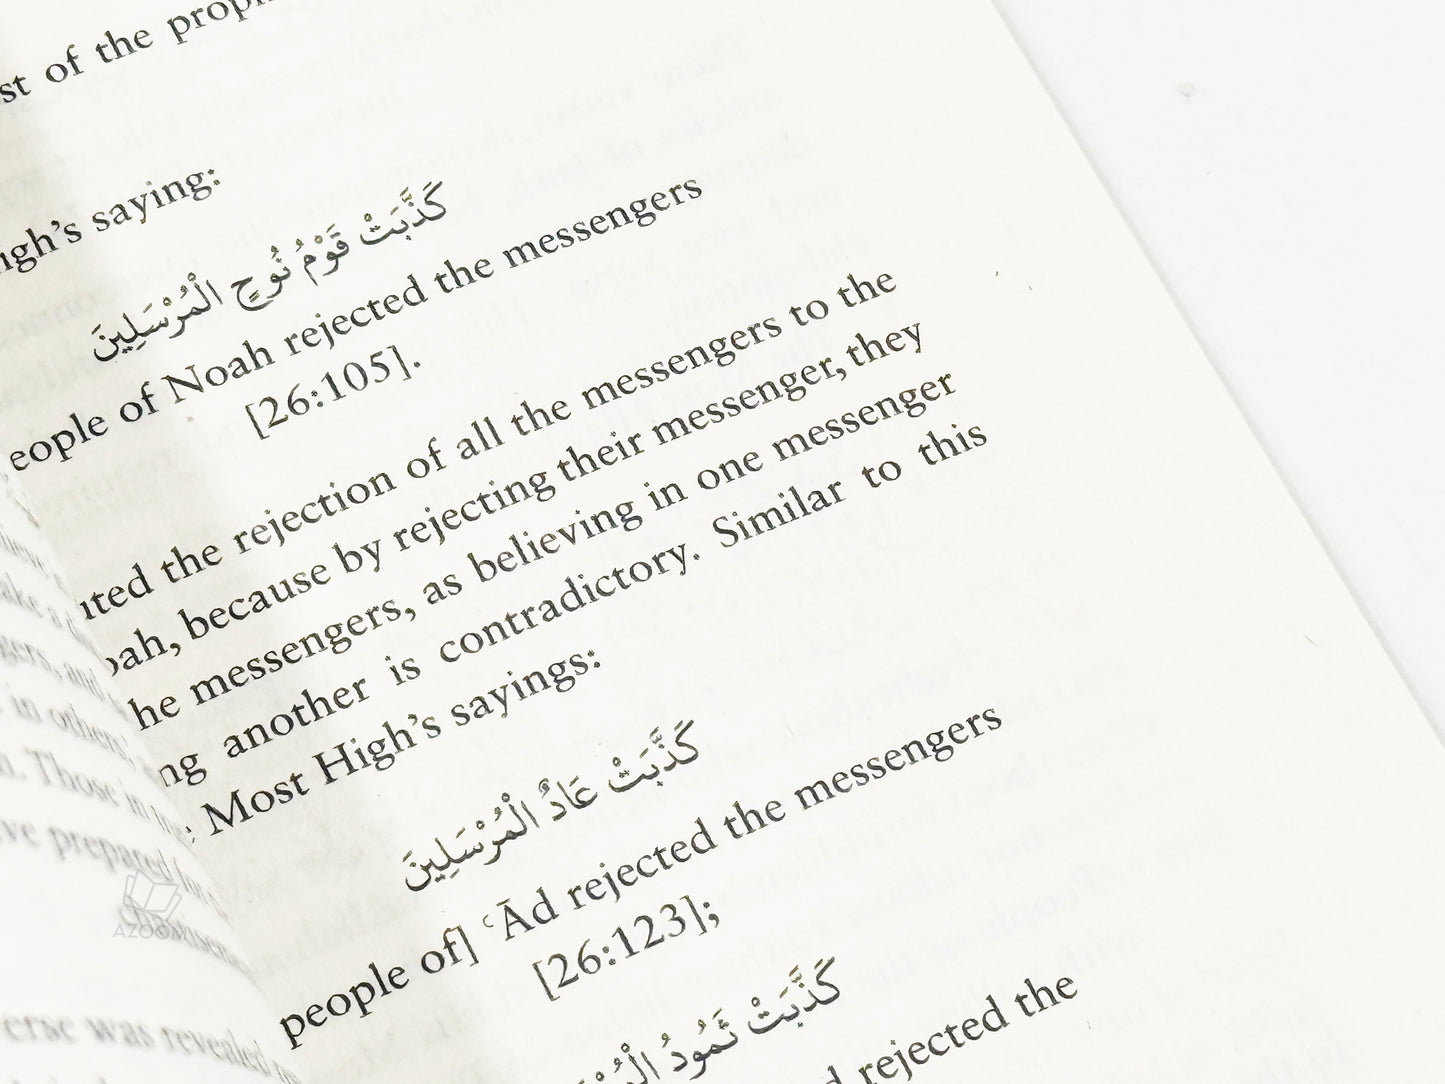 of the
saying:
كَذَّبَتْ قَوْمُ نُوحٍ الْمُرْسَلِينَ
of Noah rejected the messengers
[26:105].
the rejection of all the messengers to the
because by rejecting their messenger, they
messengers, as believing in one messenger
another is contradictory. Similar to this
Most High's sayings:
كَذَّبَتْ عَادٌ الْمُرْسَلِينَ
people of] ʿĀd rejected the messengers
[26:123];
كَذَّبَتْ ثَمُودُ
rejected the
in others,
Those in
prepared for
was revealed
AZOOM